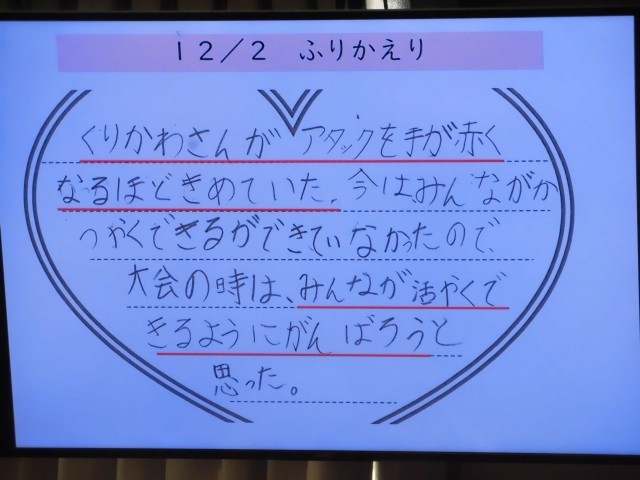 12/2 ふりかえり
くりかわさんが アタックを手が赤く
なるほどきめていた。今は、みんながか
つやくできるができていなかったので、
大会の時は、みんなが活やくで
きるようにがんばろうと
思った。